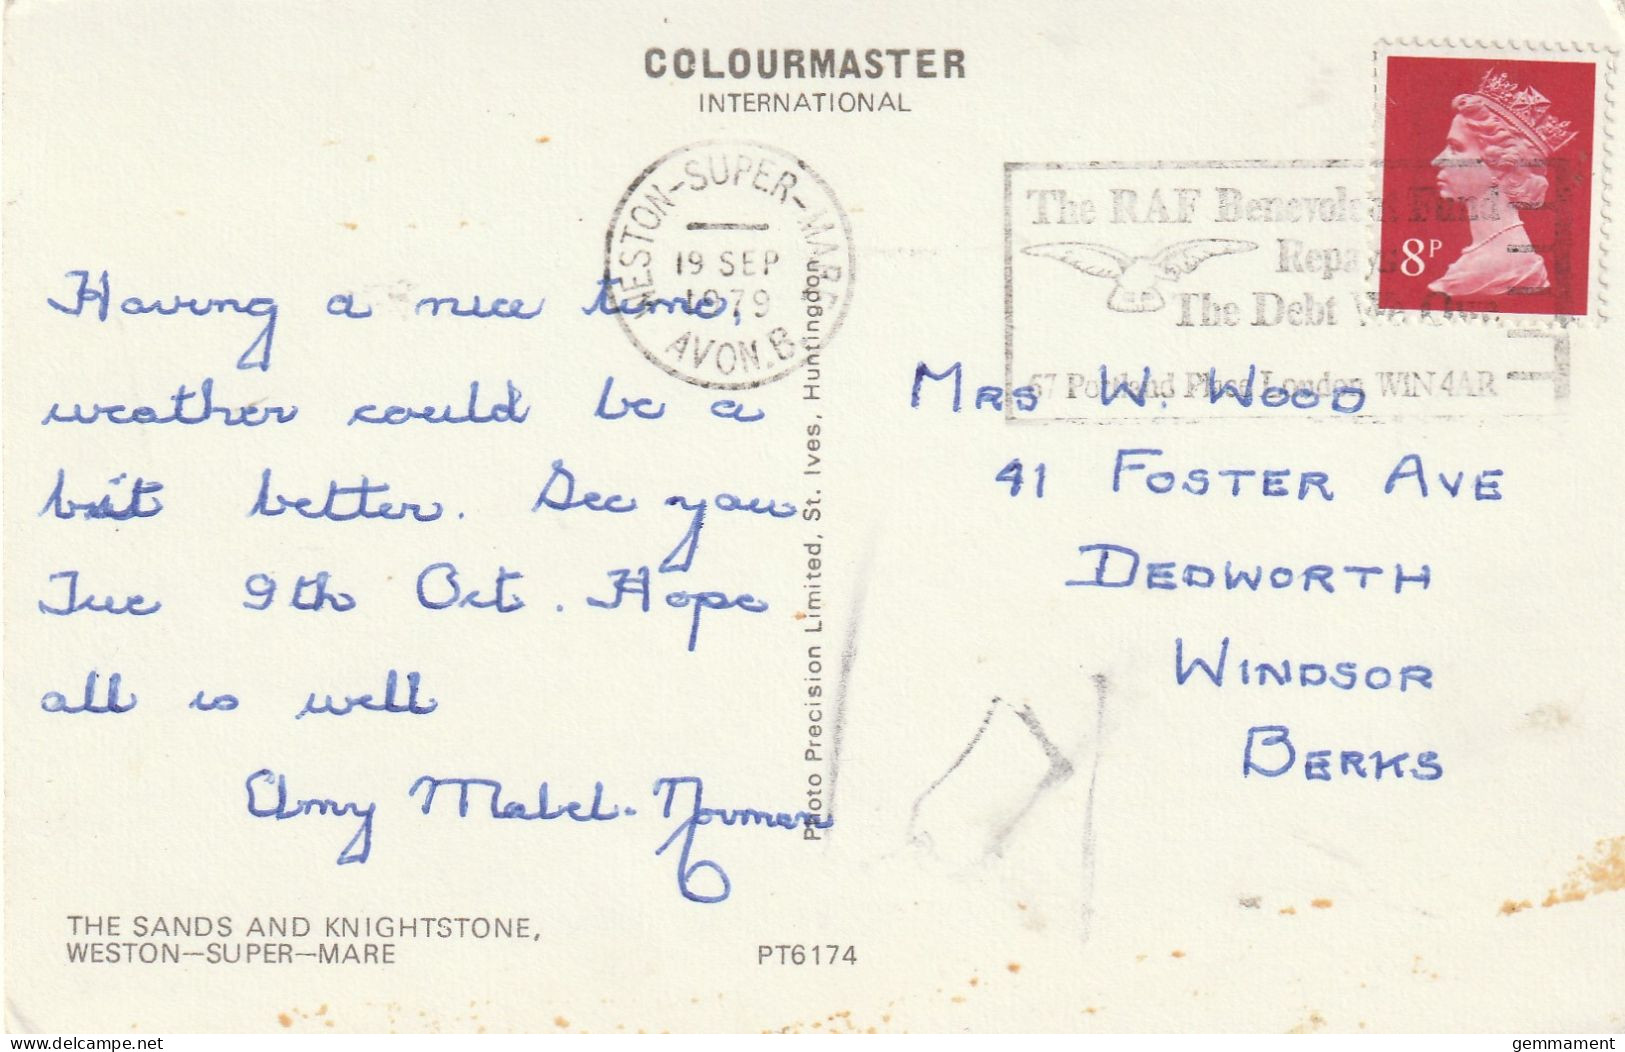 COLOURMASTER
INTERNATIONAL
WESTON-SUPER-MARE
19 SEP
1979
AVON.B
The RAF Benevolent Fund
Repays
The Debt We Owe
67 Portland Place London W1N 4AR
8P
Having a nice time,
weather could be a
bit better. See you
Tue 9th Oct. Hope
all is well
Amy Mabel. Norman
Mrs W. Wood
41 Foster Ave
Dedworth
Windsor
Berks
Photo Precision Limited, St. Ives, Huntingdon
THE SANDS AND KNIGHTSTONE,
WESTON—SUPER—MARE
PT6174
www.delcampe.net
gemmament